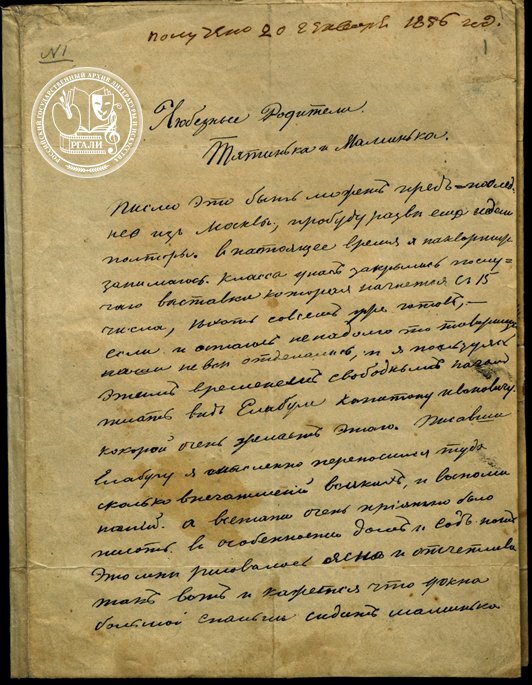 получено 20 Генваря 1856 год.
№1
1
РОССИЙСКИЙ ГОСУДАРСТВЕННЫЙ АРХИВ ЛИТЕРАТУРЫ И ИСКУССТВА
РГАЛИ
Любезные Родители
Тятинька и Маминька.
Письмо это быть можетъ предъ-послед
нее изъ Москвы, пробуду разви еще недели
полторы. в настоящее время я на квартире
занимаюсь. Класса у насъ закрылись по слу-
чаю выставки которая начнется съ 15
числа, я хоть совсемъ уже готовъ,
если и осталось ненадолго то товарищи
наши не все отделались, и я пользуясь
этимъ временемъ свободнымъ началъ
писать видъ Елабуги Капитону Ивановичу
которой очень желаетъ этого. Писавши
Елабугу я мысленно переносился туда
сколько впечатлений всякихъ, и воспоми
наний. а всетаки очень приятно было
писать. в особенности домъ и садъ нашъ
это мне рисовалось ясно и отчетливо
такъ вотъ и кажется что у окна
большой спальни сидитъ маминька